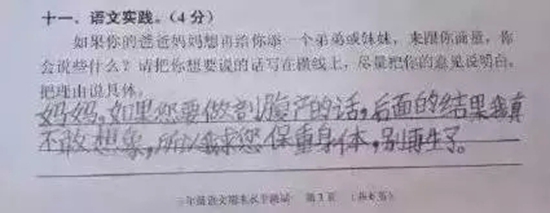 十一、语文实践。(4分)
如果你的爸爸妈妈想再给你添一个弟弟或妹妹，来跟你商量，你
会说些什么？请把你想要说的话写在横线上，尽量把你的意见说明白，
把理由说具体。
妈妈，如果您要做剖腹产的话，后面的结果我真
不敢想象，所以我求您保重身体，别再生了。
年级语文期末水平测试 第3页 (共4页)